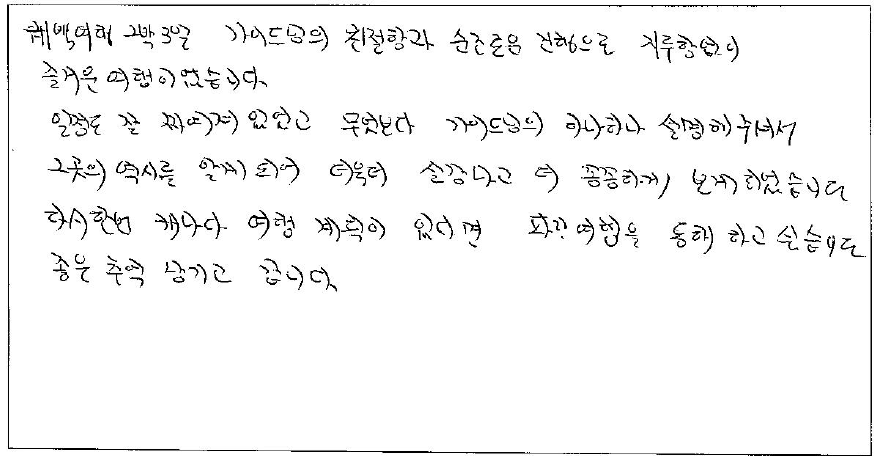 퀘백여행 2박3일 가이드님의 친절함과 순조로운 진행으로 지루함없이
즐거운 여행이었습니다.
일정도 잘 짜여져 있었고 무엇보다 가이드님의 하나하나 설명해주셔서
그곳의 역사를 알게 되어 더욱더 실감나고 더 꼼꼼하게 보게되었습니다
다시한번 캐나다 여행 계획이 있다면 파란여행을 통해 하고 싶습니다
좋은 추억 남기고 갑니다.